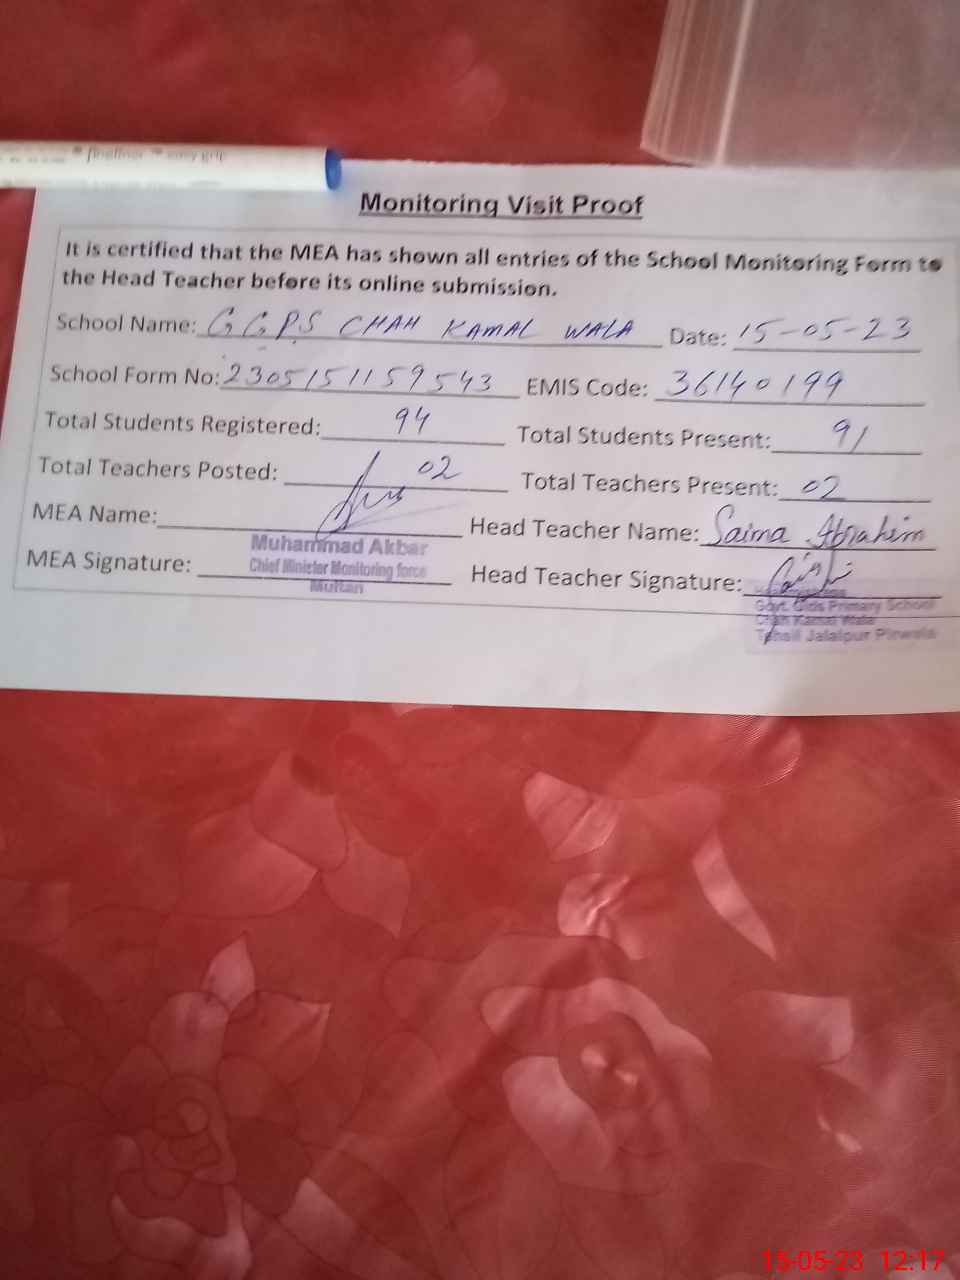 fineliner easy grip
Monitoring Visit Proof
It is certified that the MEA has shown all entries of the School Monitoring Form to
the Head Teacher before its online submission.
School Name: GGPS CHAH KAMAL WALA Date: 15-05-23
School Form No: 2305151159543 EMIS Code: 36140199
Total Students Registered: 94 Total Students Present: 91
Total Teachers Posted: 02 Total Teachers Present: 02
MEA Name: Head Teacher Name: Saima Abrahim
Muhammad Akbar
MEA Signature: Chief Minister Monitoring force Head Teacher Signature:
Multan
Govt. Girls Primary School
Chah Kamal Wala
Tehsil Jalalpur Pirwala
15-05-23 12:17